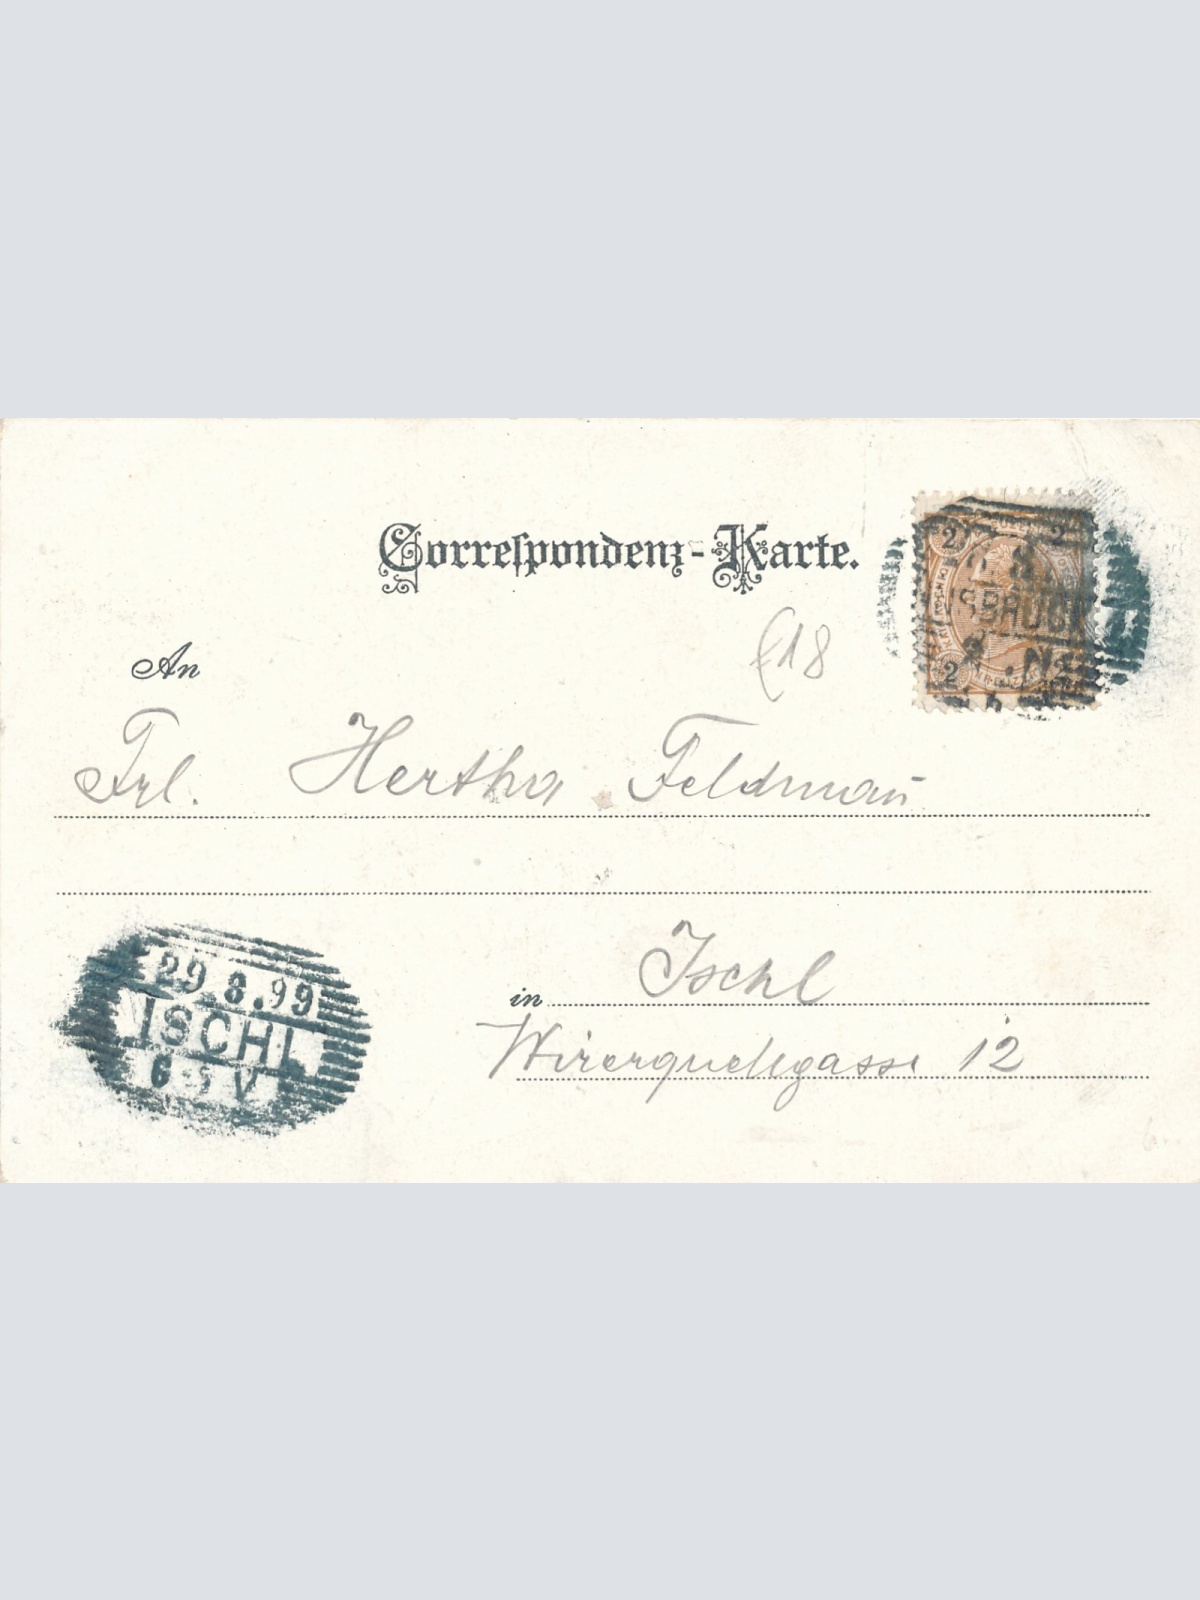 Correspondenz-Karte.
An
€18
Frl. Hertha Feldman̄
in Ischl
Wirerquellgasse 12
29 8.99
ISCHL
2 2
2